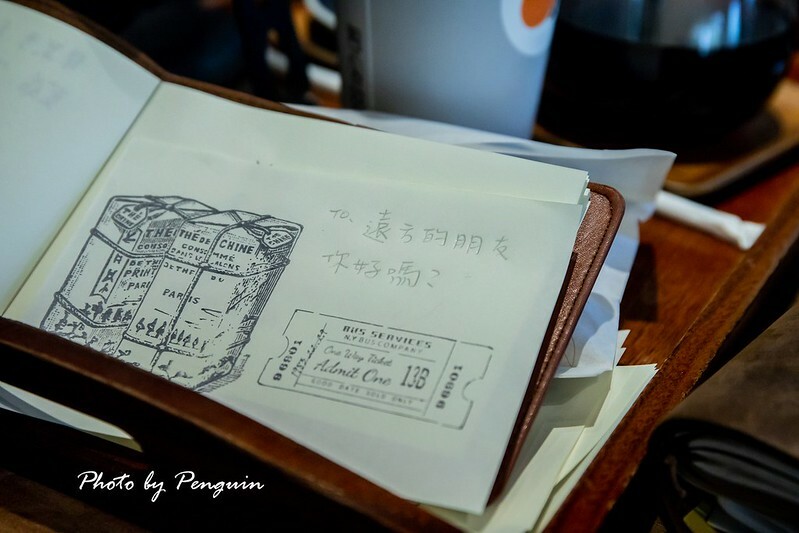 To. 遠方的朋友
你好嗎?
THÉ
THE
CONSO
PARI
THÉ DE CHINE
CONSOMMÉ
PARIS
BUS SERVICES
N.Y. BUS COMPANY
One Way Ticket
Admit One
13B
GOOD DATE SOLD ONLY
96801
96801
Photo by Penguin